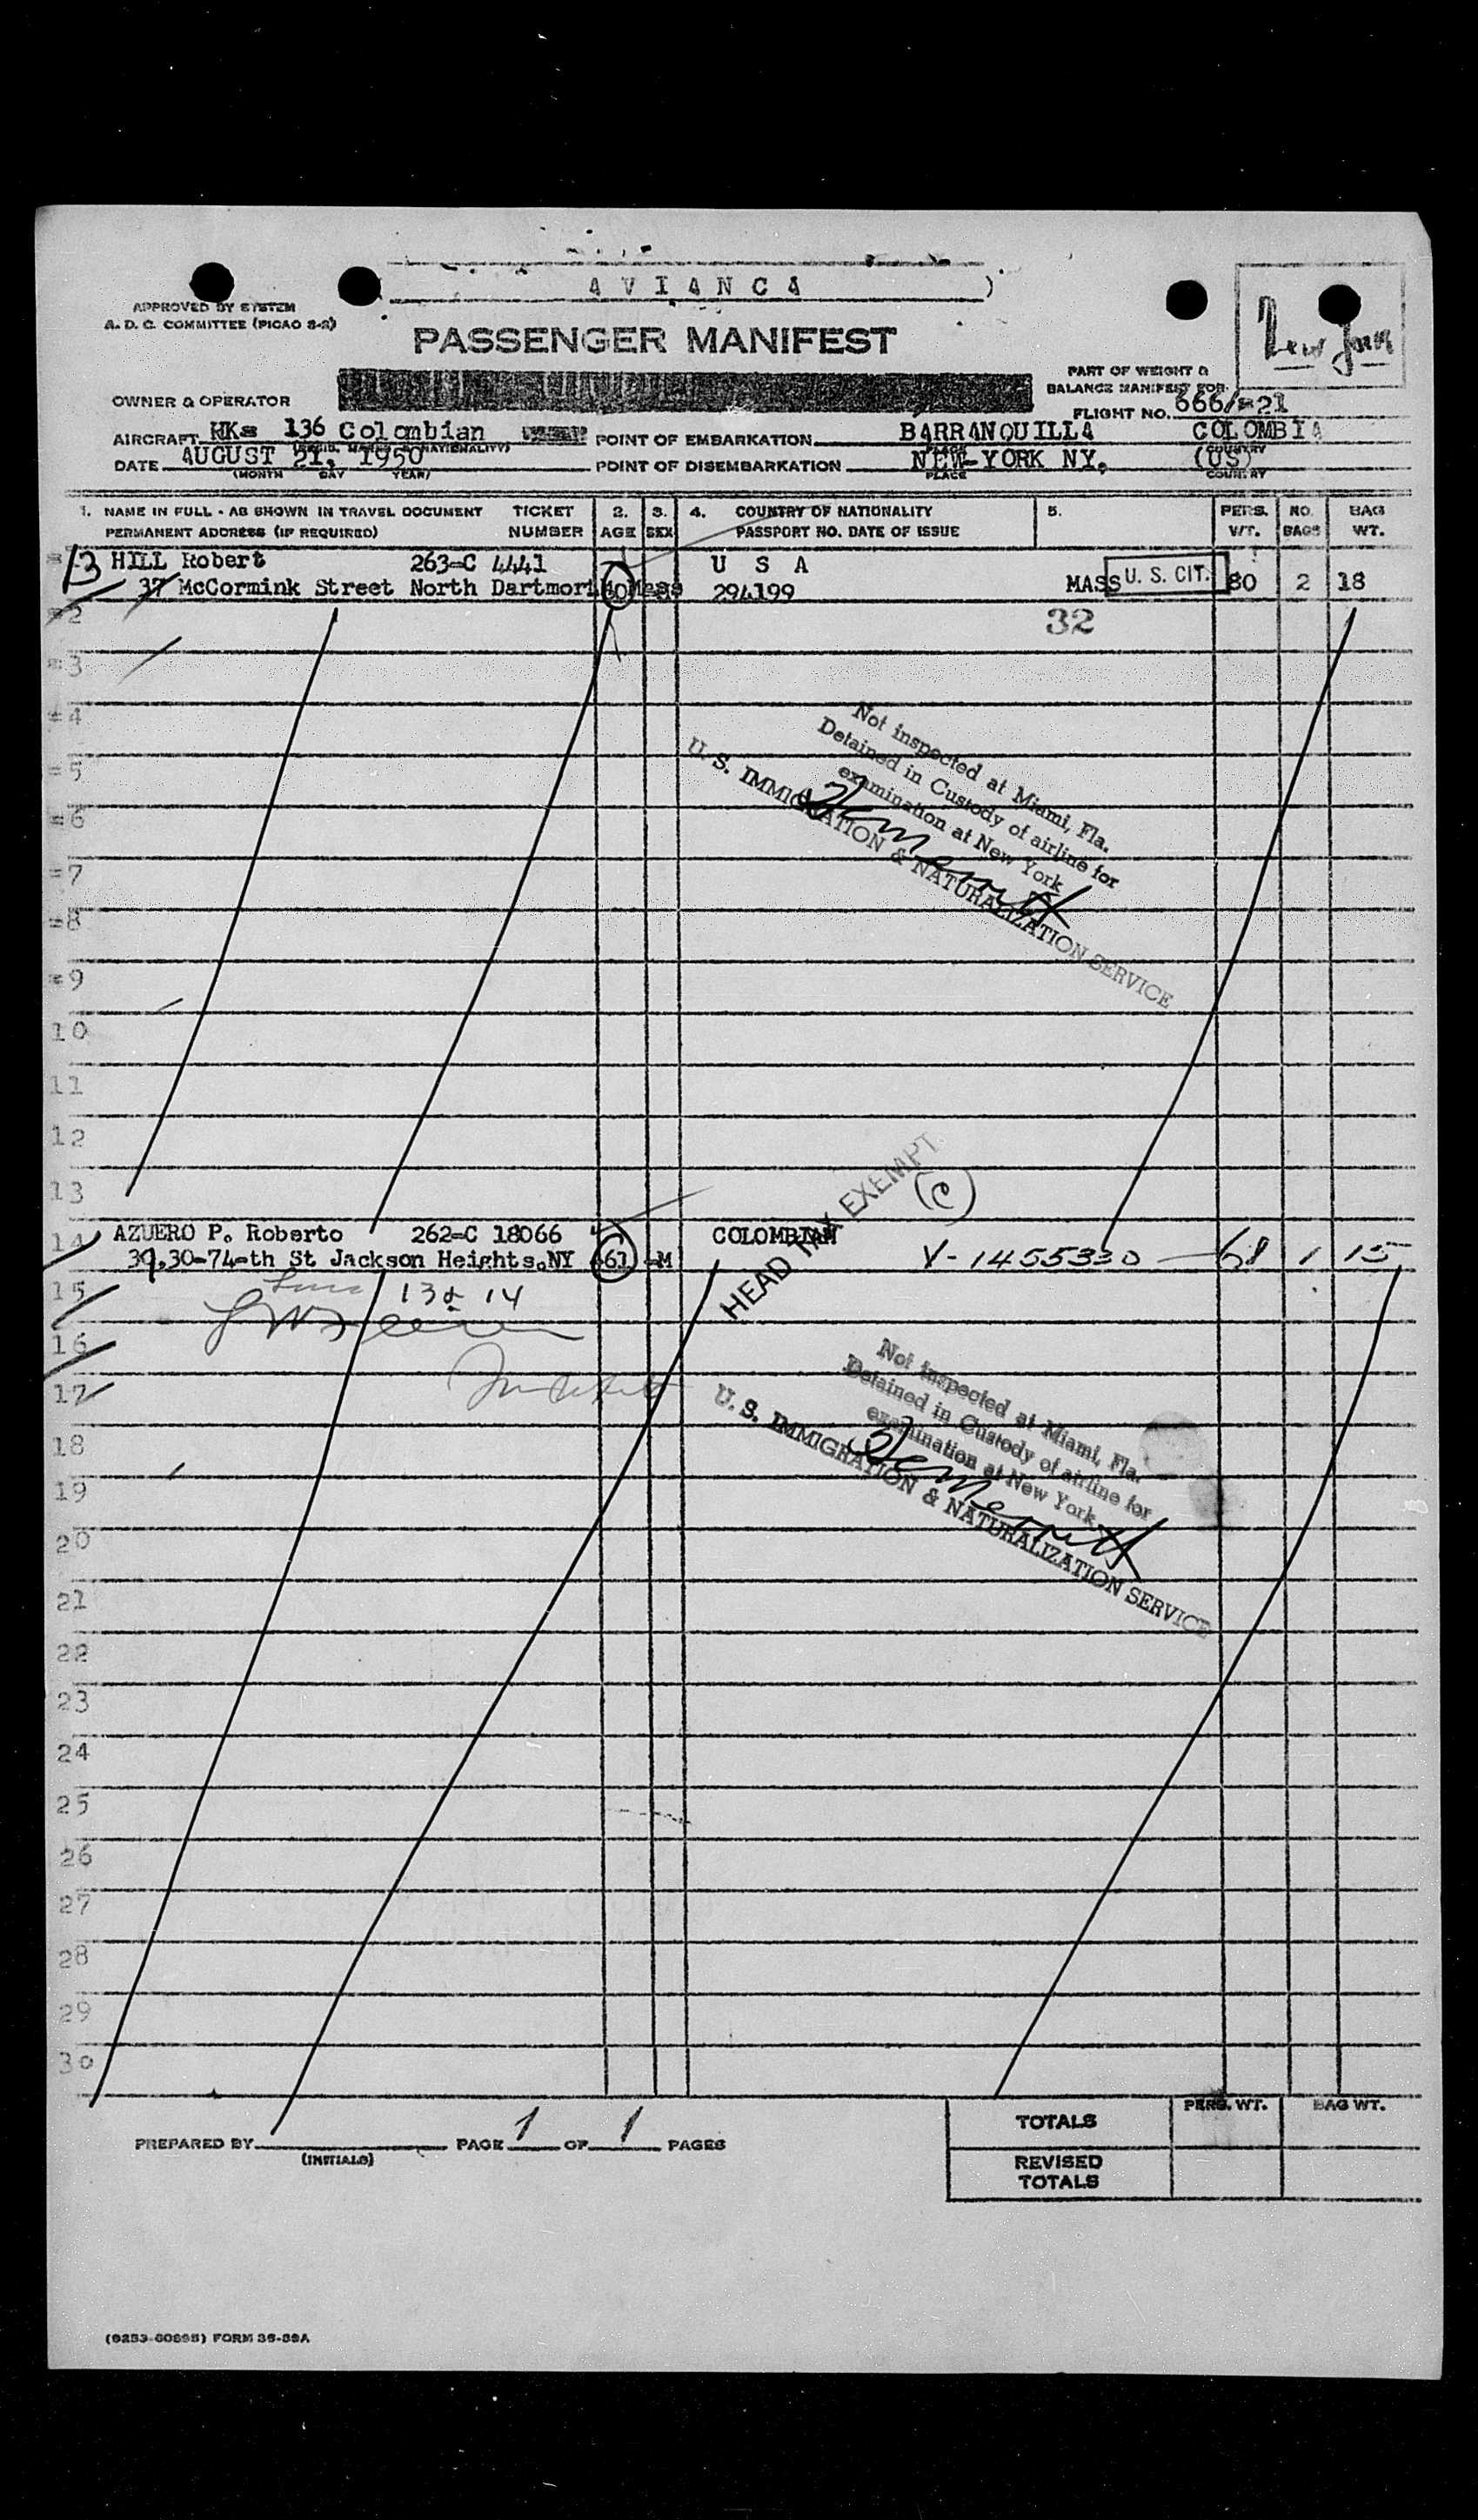 AVIANCA )
APPROVED BY SYSTEM
A. D. C. COMMITTEE (PICAO 8-2)
PASSENGER MANIFEST
New York
PART OF WEIGHT &
BALANCE MANIFEST FOR
OWNER & OPERATOR
FLIGHT NO. 666/=21
AIRCRAFT HK= 136 Colombian POINT OF EMBARKATION BARRANQUILLA COLOMBIA
PLACE COUNTRY
DATE AUGUST 21, 1950 POINT OF DISEMBARKATION NEW-YORK NY, (US)
(MONTH DAY YEAR) PLACE COUNTRY
1. NAME IN FULL - AS SHOWN IN TRAVEL DOCUMENT TICKET 2. 3. 4. COUNTRY OF NATIONALITY 5. PERS. NO. BAG
PERMANENT ADDRESS (IF REQUIRED) NUMBER AGE SEX PASSPORT NO. DATE OF ISSUE WT. BAGS WT.
13 HILL Robert 263=C 4441 U S A
37 McCormink Street North Dartmori 40 Mass 294199 MASS U. S. CIT. 80 2 18
=2 32
=3
=4
Not inspected at Miami, Fla.
Detained in Custody of airline for
examination at New York
U. S. IMMIGRATION & NATURALIZATION SERVICE
=5
=6
=7
=8
=9
10
11
12
13
HEAD TAX EXEMPT
(c)
14 AZUERO P. Roberto 262=C 18066 COLOMBIAN
30-74=th St Jackson Heights.NY 61 =M V-1455330 68 1 15
15 Line 13 & 14
16
17
Not inspected at Miami, Fla.
Detained in Custody of airline for
examination at New York
U. S. IMMIGRATION & NATURALIZATION SERVICE
18
19
20
21
22
23
24
25
26
27
28
29
30
PREPARED BY PAGE 1 OF 1 PAGES
(INITIALS)
PERS. WT. BAG WT.
TOTALS
REVISED
TOTALS
(9253-60895) FORM 36-39A